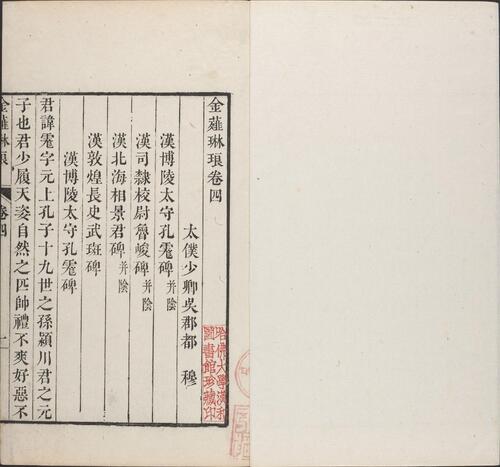 金薤琳琅卷四
太僕少卿吳郡都 穆
漢博陵太守孔霮碑并陰
漢司隸校尉魯峻碑并陰
漢北海相景君碑并陰
漢敦煌長史武斑碑
漢博陵太守孔霮碑
君諱霮字元上孔子十九世之孫潁川君之元
子也君少履天姿自然之正帥禮不爽好惡不
金薤琳琅
卷四
一
哈佛大學漢和
圖書館珍藏印